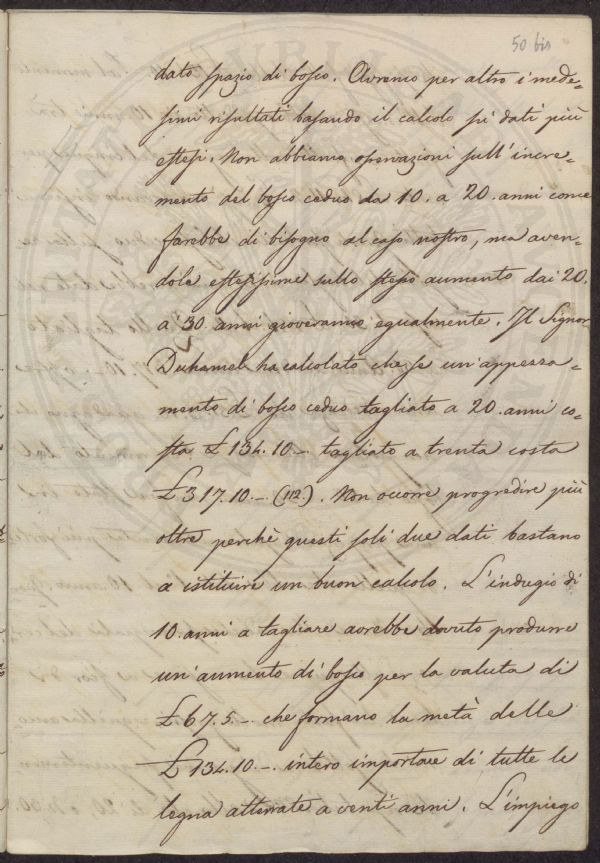 50 bis
dato spazio di bosco. Avremo per altro i mede-
simi risultati basando il calcolo su dati più
estesi. Non abbiamo osservazioni sull'incre-
mento del bosco ceduo da 10. a 20. anni come
farebbe di bisogno al caso nostro, ma aven-
dole estesissime sullo stesso aumento dai 20.
a 30 anni gioveranno egualmente. Il Signor
Duhamel ha calcolato che se un'appezza-
mento di bosco ceduo tagliato a 20. anni co-
sta £134.10.- tagliato a trenta costa
£317.10.- (112.). Non occorre progredire più
oltre perchè questi soli due dati bastano
a istituire un buon calcolo. L'indugio di
10. anni a tagliare avrebbe dovuto produrre
un'aumento di bosco per la valuta di
£67.5.- che formano la metà delle
£134.10.-. intero importare di tutte le
legna atterrate a venti anni. L'impiego